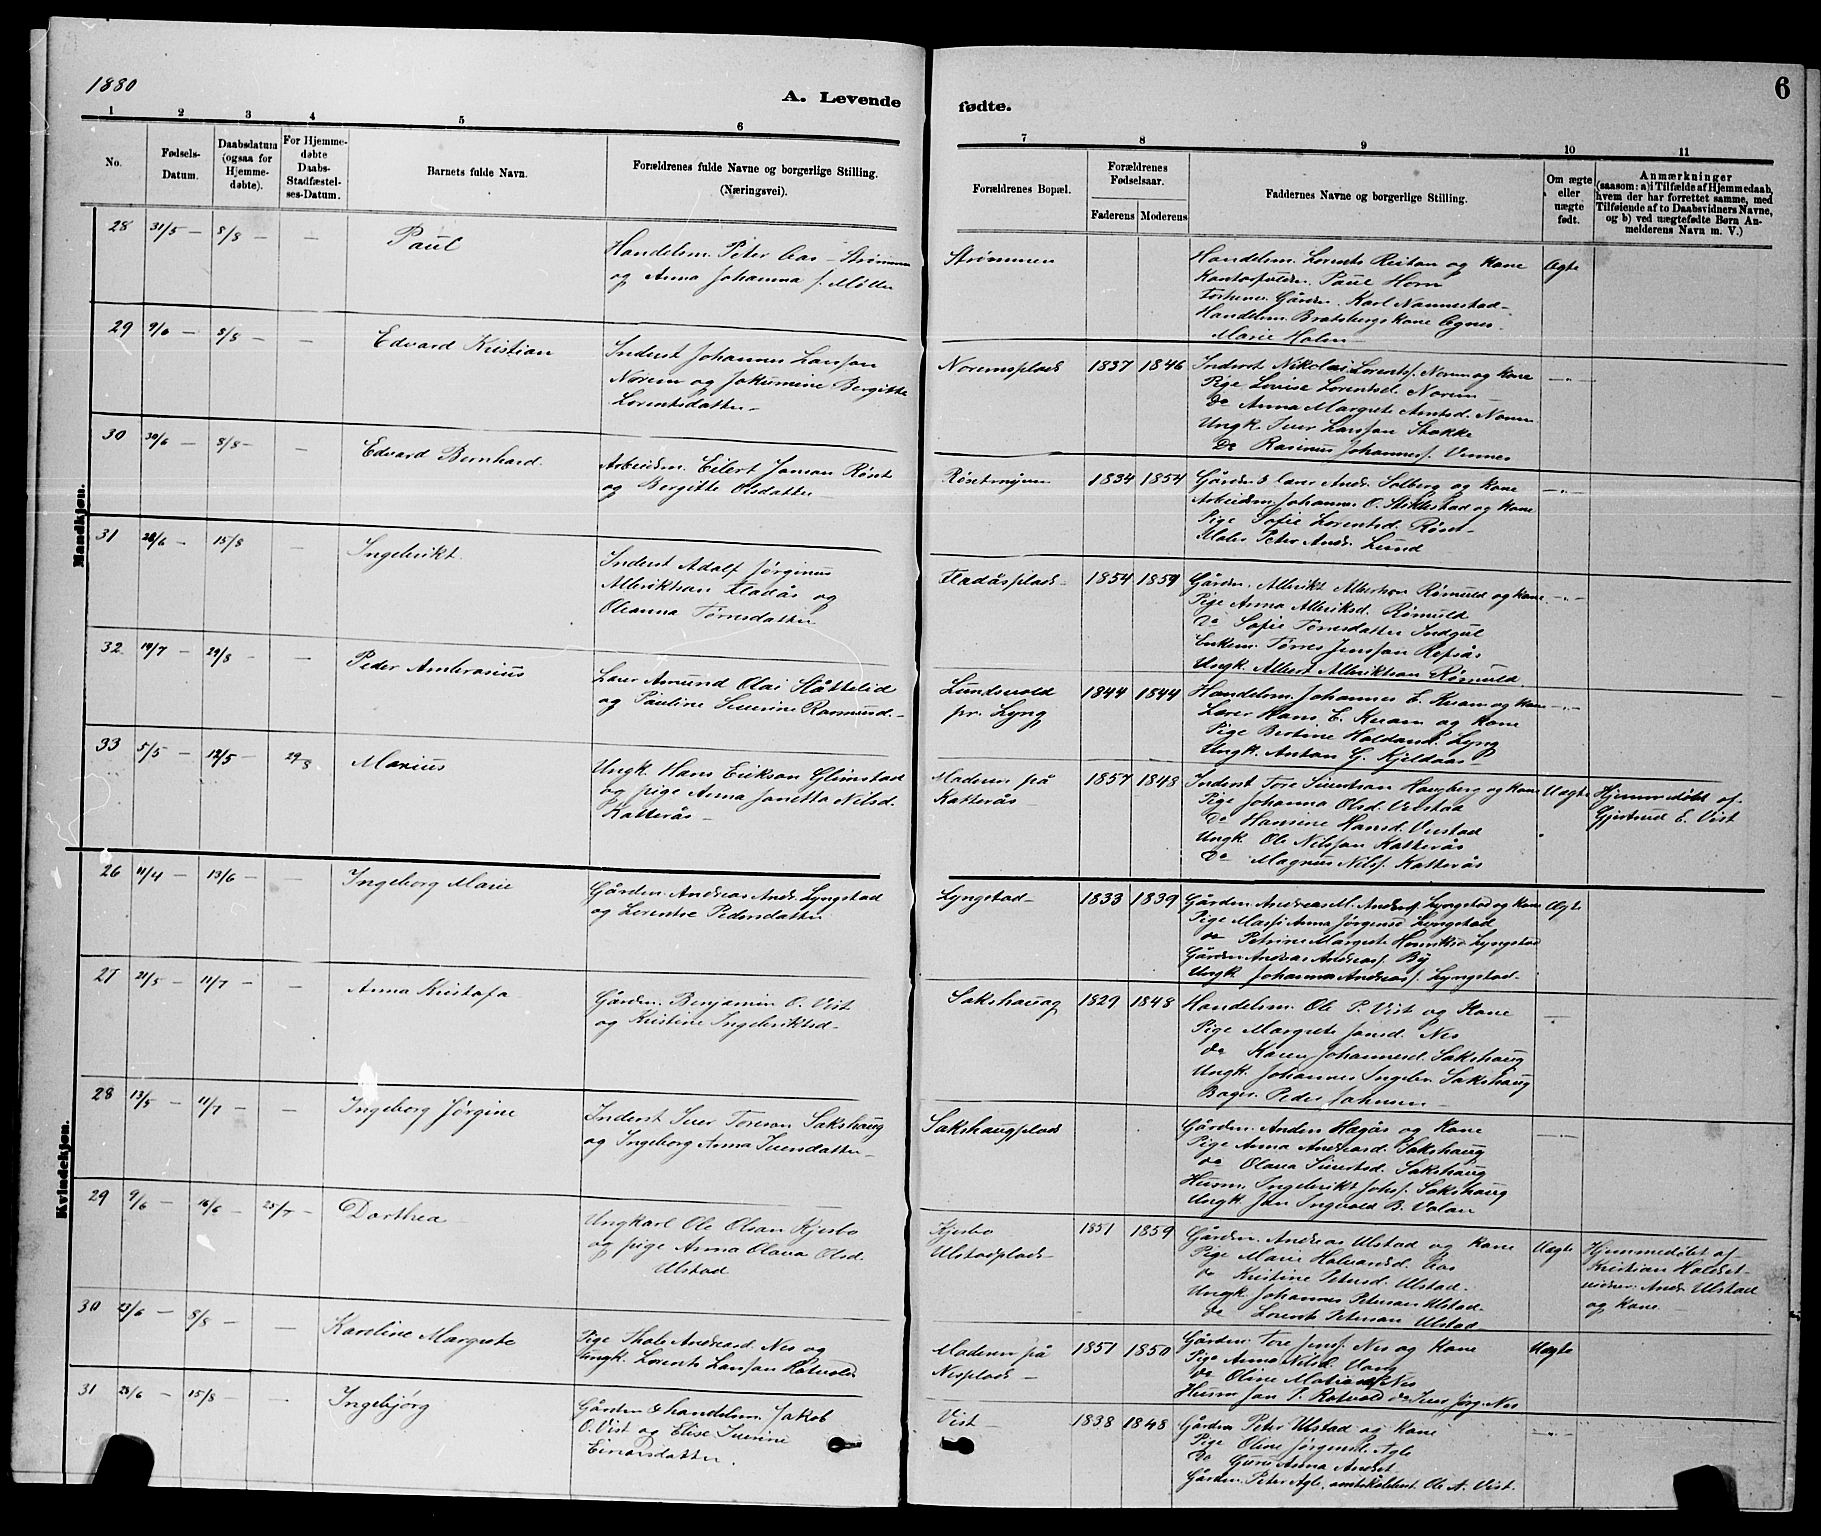 1880
A. Levende
fødte.
6
1 2 3 4 5 6 7 8 9 10 11
No.
Fødsels-
Datum.
Daabsdatum
(ogsaa for
Hjemme-
døbte).
For Hjemme-
døbte
Daabs-
Stadfæstel-
ses-Datum.
Barnets fulde Navn.
Forældrenes fulde Navne og borgerlige Stilling.
(Næringsvei).
Forældrenes Bopæl.
Forældrenes
Fødselsaar.
Faderens Moderens
Faddernes Navne og borgerlige Stilling.
Om ægte
eller
uægte
født.
Anmærkninger
(saasom: a) i Tilfælde af Hjemmedaab,
hvem der har forrettet samme, med
Tilføiende af to Daabsvidners Navne,
og b) ved uægtefødte Børn An-
melderens Navn m. V.)
Mandkjøn.
28 31/5 — 8/8 — — Paul
Handelsm. Peter Aas - Strømmen
og Anna Johanna f. Møller
Strømmen
Handelsm. Lorents Reitan og Kone
Paul Horn
Gårdbr. Karl Nannestad
Handelsm. Bratsbergs Kone Agnes
Marie Holm
Ægte
29 9/6 — 8/8 — — Edvard Kristian
Inderst Johannes Larssen
Norem og Jokumine Bergitte
Lorentsdatter —
Noremsplads 1837 1846
Inderst Nikolai Lorentsf. Norem og Kone
Pige Lovise Lorentsd. Norem —
Do Anna Margrete Arntsd. Norem
Ungk. Iver Larssen Stokke
Do Rasmus Johannesf. Vennes
— " —
30 30/6 — 8/8 — — Edvard Bernhard.
Arbeidsm. Eilert Jonsen Røset
og Bergitte Olsdatter —
Røsetmyren 1834 1854
Gårdbr & Lærer Andr. Solberg og Kone
Arbeidsm. Johannes O. Stiklestad og Kone
Pige Sofie Lorentsd. Røset —
Maler Peter Andr. Lund
— " —
31 28/6 — 15/8 — Ingebrikt.
Inderst Adolf Jørginus
Albriktsen Fladås og
Oleanna Tørresdatter
Fladåsplads — 1854 1859
Gårdbr. Albrikt Albertsen Rømuld og Kone
Pige Anna Albriksd. Rømuld
Do Sofie Tørresdatter Indgul
Enkem. Tørres Jenssen Refsås
Ungk. Albert Albriktsen Rømuld
— " —
32 19/7 — 29/8 — — Peder Ambrosius
Lærer Amund Olai Slåttelid
og Pauline Severine Rasmusd. —
Lundsvold
pr. Lyng
1844 1844
Handelsm. Johannes E. Kvam og Kone
Lærer Hans E. Kvam og Kone
Pige Bertine Holdand. Lyng
Ungk. Anton G. Kjeldaas
— " —
33 5/5 — 12/5 — 29/8 Marius
Ungk. Hans Erikson Glimstad
og pige Anna Janetta Nilsd.
Katterås —
Moderen på
Katterås —
1857 1848
Inderst Tore Sivertsen Hauberg og Kone
Pige Johanna Olsd. Velstad
Do Hansine Hansd. Verstad
Ungk. Ole Nilssen Katterås
Do Magnus Nilsf. Katterås
Uægte
Hjemmedøbt af
Gjertrud E. Vist
Kvindekjøn.
26 11/4 — 13/6 — — Ingeborg Marie
Gårdbr. Andreas Andr. Lyngstad
og Lorentse Pedersdatter
Lyngstad — 1833 1839
Gårdbr. Andreas M. Andersf. Lyngstad og Kone
Pige Massi Anna Jørgense Lyngstad
do Petrine Margrete Henriks. Lyngstad
Gårdbr. Andreas Andreasf. By
Ungk. Johannes Andreasf. Lyngstad —
Ægte
27 21/5 — 11/7 — — Anna Kristofa —
Gårdbr. Benjamin O. Vist
og Kristine Ingebriktsd —
Sakshaug 1829 1848
Handelsm. Ole P. Vist og Kone
Pige Margrete Jonsd. Nes
do Karen Johannesd. Sakshaug
Ungk. Johannes Ingebr. Sakshaug
Bager Peder Johnsen —
— " —
28 13/5 — 11/7 — — Ingeborg Jørgine
Inderst Iver Toresen Sakshaug
og Ingeborg Anna Iversdatter —
Sakshaugplads
Gårdbr. Anders Hegås og Kone
Pige Anna Andreasd. Sakshaug
do Olava Sivertsd. Sakshaug
Husm. Ingebrikt Johsf. Sakshaug
Ungk. Jon Ingvald B. Valan
— " —
29 9/6 — 16/6 — 25/7 — Dorthea —
Ungkarl Ole Olsen Kjesbo
og pige Anna Olava Olsd.
Ulstad
Kjesbo
Ulstadplads —
1851 1859
Gårdbr. Andreas Ulstad og Kone
Pige Marie Halvardsd. Aas
do Kristine Petersd. Ulstad.
Ungk. Johannes Petersen Ulstad.
do Lorents Petersen Ulstad
Uægte
Hjemmedøbt af
Kristian Haldset
vidner: Andr. Ulstad
og Kone —
30 23/6 — 8/8 — — Karoline Margrete
Pige Andreasd. Nes og
Ungk. Lorents Larssen Rotvold
Moderen på
Nesplads —
1851 1850
Gårdbr. Tore Jensf. Nes og Kone
Pige Anna Nilsd. Vang
do Oline Matiasd. Nes
Husm Jon P. Rotvold do Iver Jørg. Nes
Uægte
31 28/6 — 15/8 — — Ingebjørg
Gårdbr & handelsm. Jakob
O. Vist og Elise Iverine
Einarsdatter.
Vist — 1838 1848
Gårdbr Peter Ulstad og Kone
Pige Oline Jørgensd. Agle
Do Guru Anna Andset
Gårdbr. Peter Agle, Ole A. Vist.
— " —